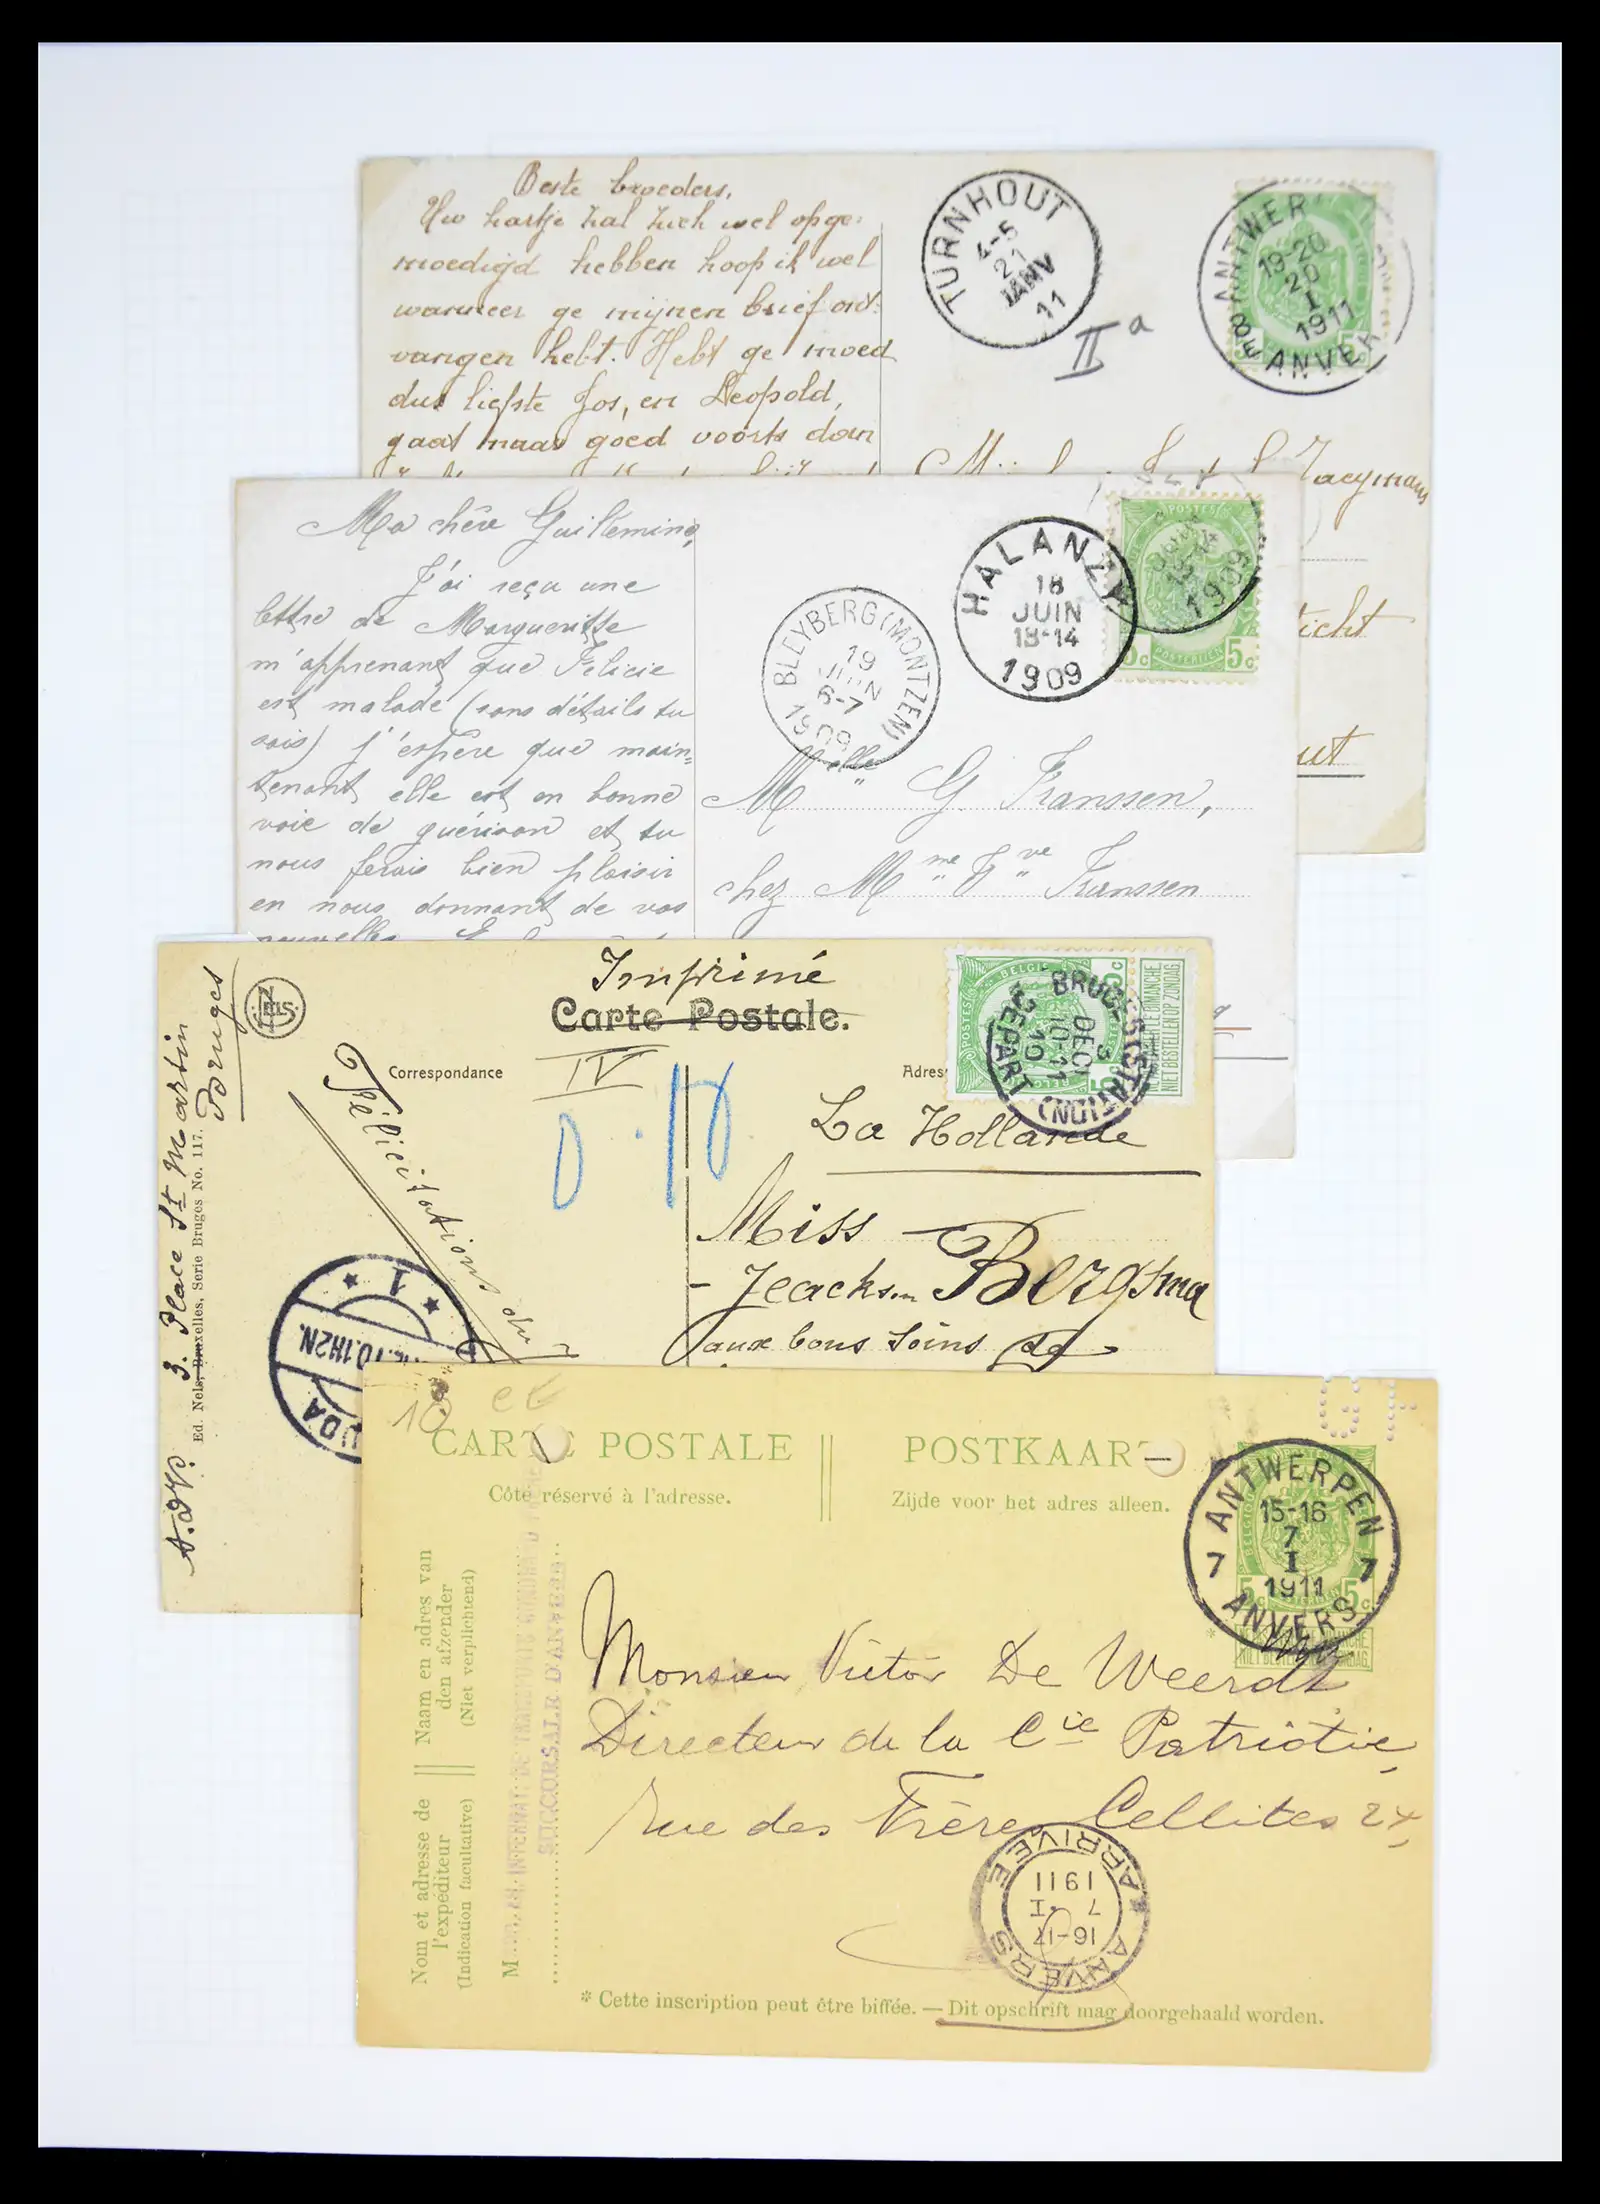 Beste broeders,
Uw hartje zal zich wel opge-
moedigd hebben hoop ik wel
wanneer ge mijnen brief ont-
vangen hebt. Hebt ge moed
dus liefste Jos, en Leopold,
gaat maar goed voorts dan
TURNHOUT
4-5
21
JANV
11
IIa
ANTWER
19-20
20
I
1911
8E ANVER
5c
Zaeymans
icht
ut
Ma chère Guillemine,
J'ai reçu une
lettre de Margueritte
m'apprenant que Félicie
est malade (sans détails tu
sais) j'espère que main-
tenant elle est en bonne
voie de guérison et tu
nous ferais bien plaisir
en nous donnant de vos
nouvelles
BLEYBERG (MONTZEN)
19
JUIN
6-7
1909
HALANZY
18
JUIN
13-14
1909
POSTES
1909
5c POSTERIJEN 5c
Melle G. Franssen,
chez Mme Vve Franssen
Imprimé
Carte Postale.
Correspondance
IV
Adres
0.10
Félicitations du
BELGI
BRUG
(STATION)
3
DECE
10-11
10
DEPART
NIET BESTELLEN OP ZONDAG
La Hollande
Miss
Jeackson Bergsma
aux bons soins de
3. Place St Martin
Bruges
Ed. Nels, Bruxelles, Serie Bruges No. 117.
NELS
1
10.1H2N.
UDA
10
CARTE POSTALE || POSTKAART
Côté réservé à l'adresse.
Zijde voor het adres alleen.
ANTWERPEN
15-16
7
7 I 7
1911
ANVERS
5c 5c
Monsieur Victor De Weerdt
Directeur de la Cie Patriotie,
rue des Frères Cellites 24,
Nom et adresse de || Naam en adres van
l'expéditeur den afzender
(Indication facultative) || (Niet verplichtend)
SUCCURSALE D'ANVERS
ANVERS
16-17
7 I
1911
ARRIVEE
* Cette inscription peut être biffée. — Dit opschrift mag doorgehaald worden.